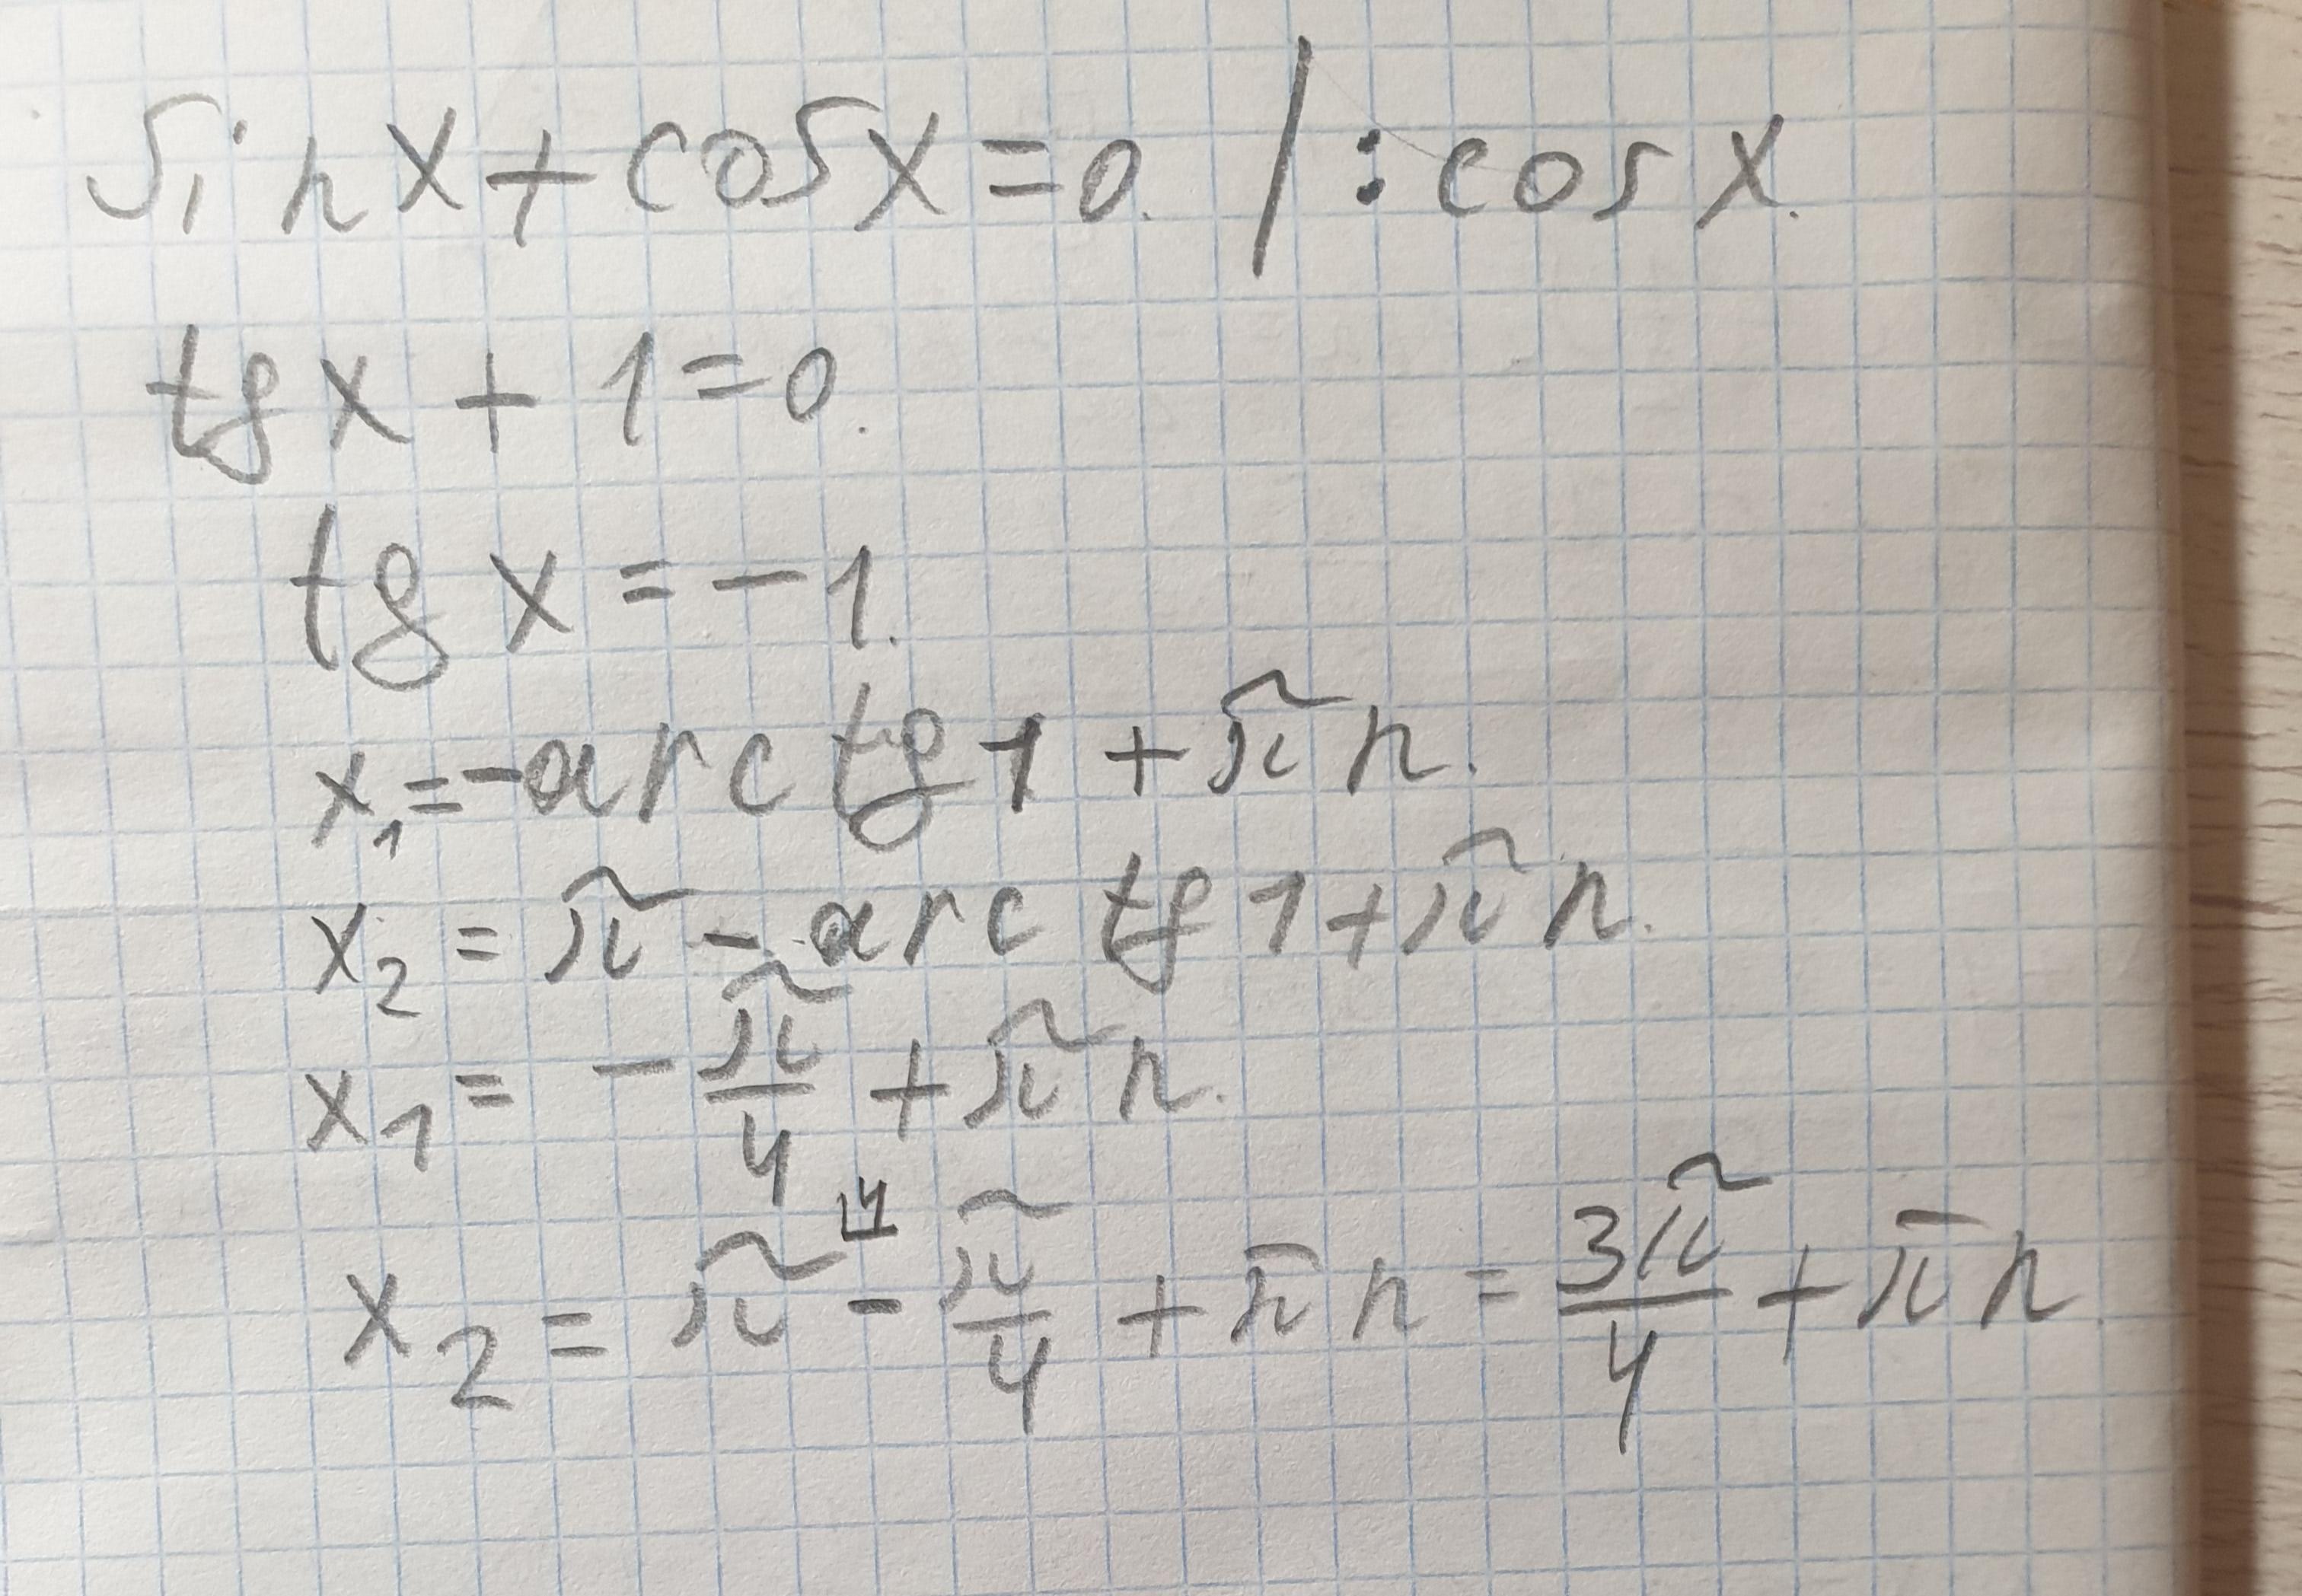 sin x + cos x = 0. / : cos x.
tg x + 1 = 0.
tg x = -1.
x₁ = -arctg 1 + πn.
x₂ = π - arctg 1 + πn.
x₁ = -π/4 + πn.
x₂ = π⁽⁴ - π/4 + πn = 3π/4 + πn